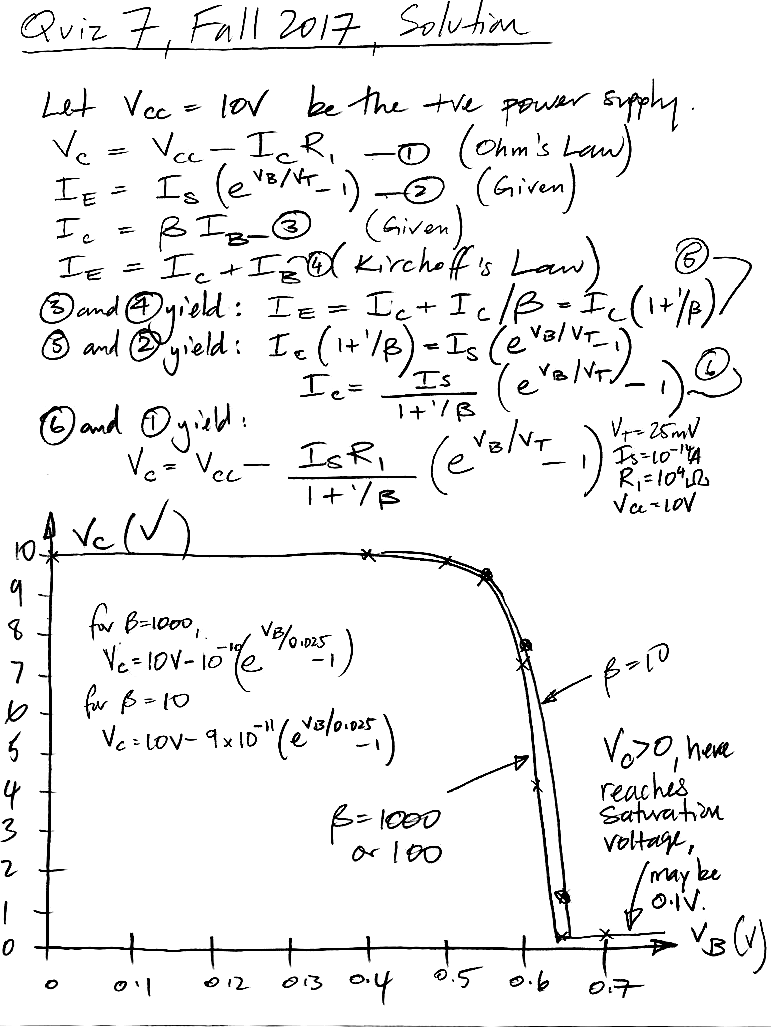 Quiz 7, Fall 2017, Solution
Let Vcc = 10V be the +ve power supply.
Vc = Vcc - Ic R1 —① (Ohm's Law)
IE = Is (e^VB/VT - 1) —② (Given)
Ic = β IB —③ (Given)
IE = Ic + IB —④ (Kirchoff's Law)
③ and ④ yield: IE = Ic + Ic/β = Ic (1+1/β) ⑤
⑤ and ② yield: Ic (1+1/β) = Is (e^VB/VT - 1)
Ic = Is / (1+1/β) (e^VB/VT - 1) ⑥
⑥ and ① yield:
Vc = Vcc - Is R1 / (1+1/β) (e^VB/VT - 1)
VT = 25mV
Is = 10^-14 A
R1 = 10^4 Ω
Vcc = 10V
Vc (V)
10
9
8
7
6
5
4
3
2
1
0
for β=1000,
Vc = 10V - 10^-10 (e^VB/0.025 - 1)
for β = 10
Vc = 10V - 9 x 10^-11 (e^VB/0.025 - 1)
β = 10
β = 1000
or 100
Vc>0, here
reaches
saturation
voltage,
may be
0.1V.
VB (V)
0 0.1 0.2 0.3 0.4 0.5 0.6 0.7